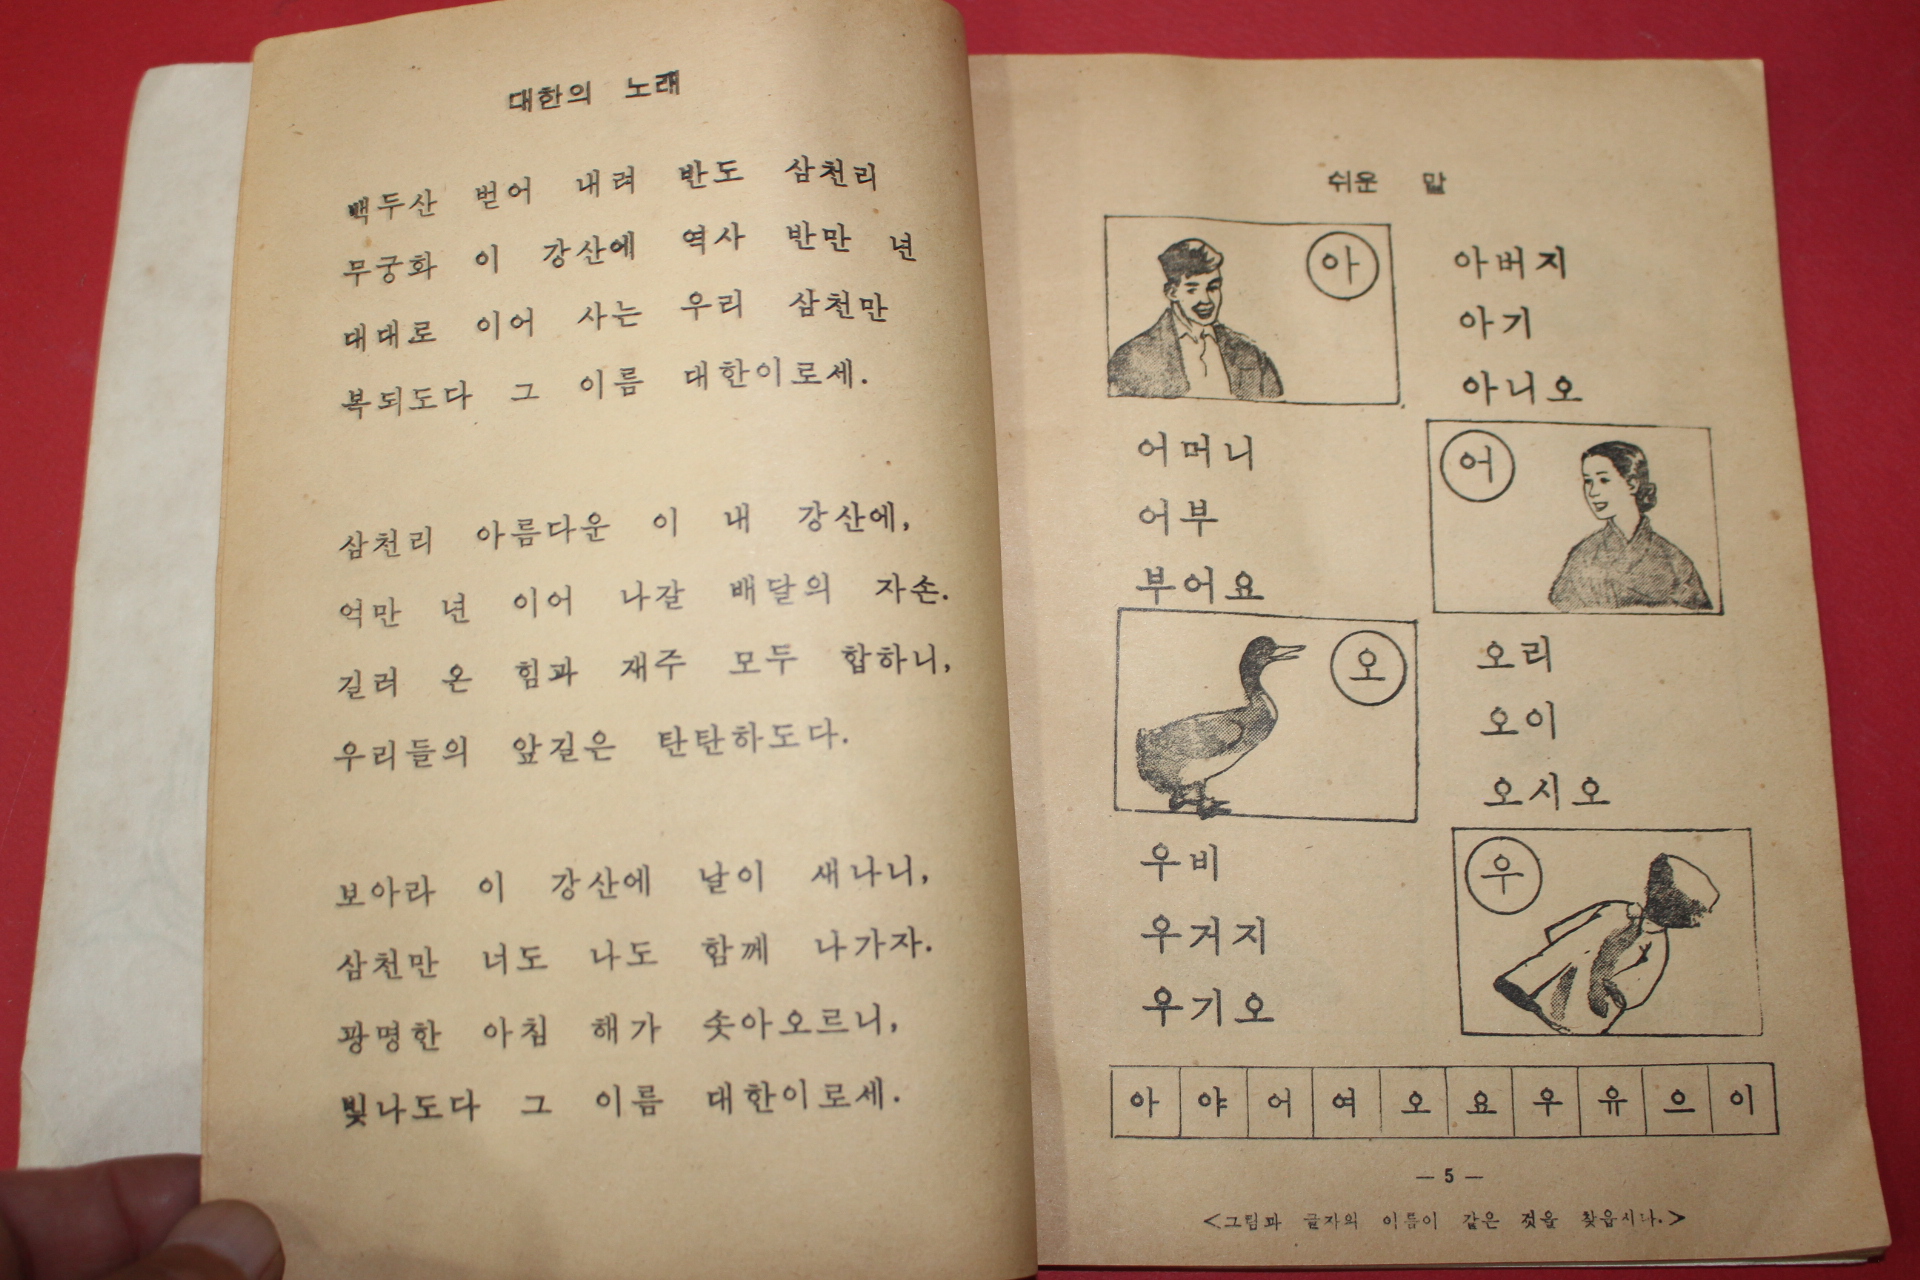 대한의 노래
백두산 벋어 내려 반도 삼천리
무궁화 이 강산에 역사 반만 년
대대로 이어 사는 우리 삼천만
복되도다 그 이름 대한이로세.
삼천리 아름다운 이 내 강산에,
억만 년 이어 나갈 배달의 자손.
길러 온 힘과 재주 모두 합하니,
우리들의 앞길은 탄탄하도다.
보아라 이 강산에 날이 새나니,
삼천만 너도 나도 함께 나가자.
광명한 아침 해가 솟아오르니,
빛나도다 그 이름 대한이로세.
쉬운 말
아
아버지
아기
아니오
어
어머니
어부
부어요
오
오리
오이
오시오
우
우비
우거지
우기오
아 야 어 여 오 요 우 유 으 이
— 5 —
<그림과 글자의 이름이 같은 것을 찾읍시다.>